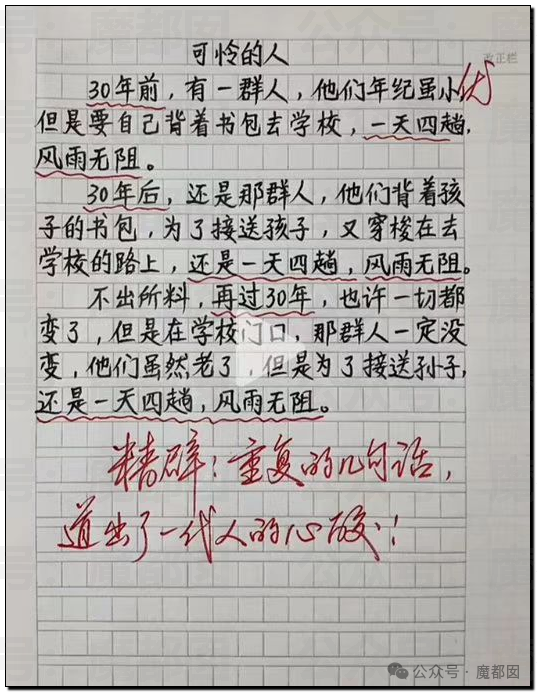 可怜的人
改正栏
30年前，有一群人，他们年纪虽小
优
但是要自己背着书包去学校，一天四趟，
风雨无阻。
30年后，还是那群人，他们背着孩
子的书包，为了接送孩子，又穿梭在去
学校的路上，还是一天四趟，风雨无阻。
不出所料，再过30年，也许一切都
变了，但是在学校门口，那群人一定没
变，他们虽然老了，但是为了接送孙子，
还是一天四趟，风雨无阻。
精辟！重复的几句话，
道出了一代人的心酸！
公众号·魔都囡